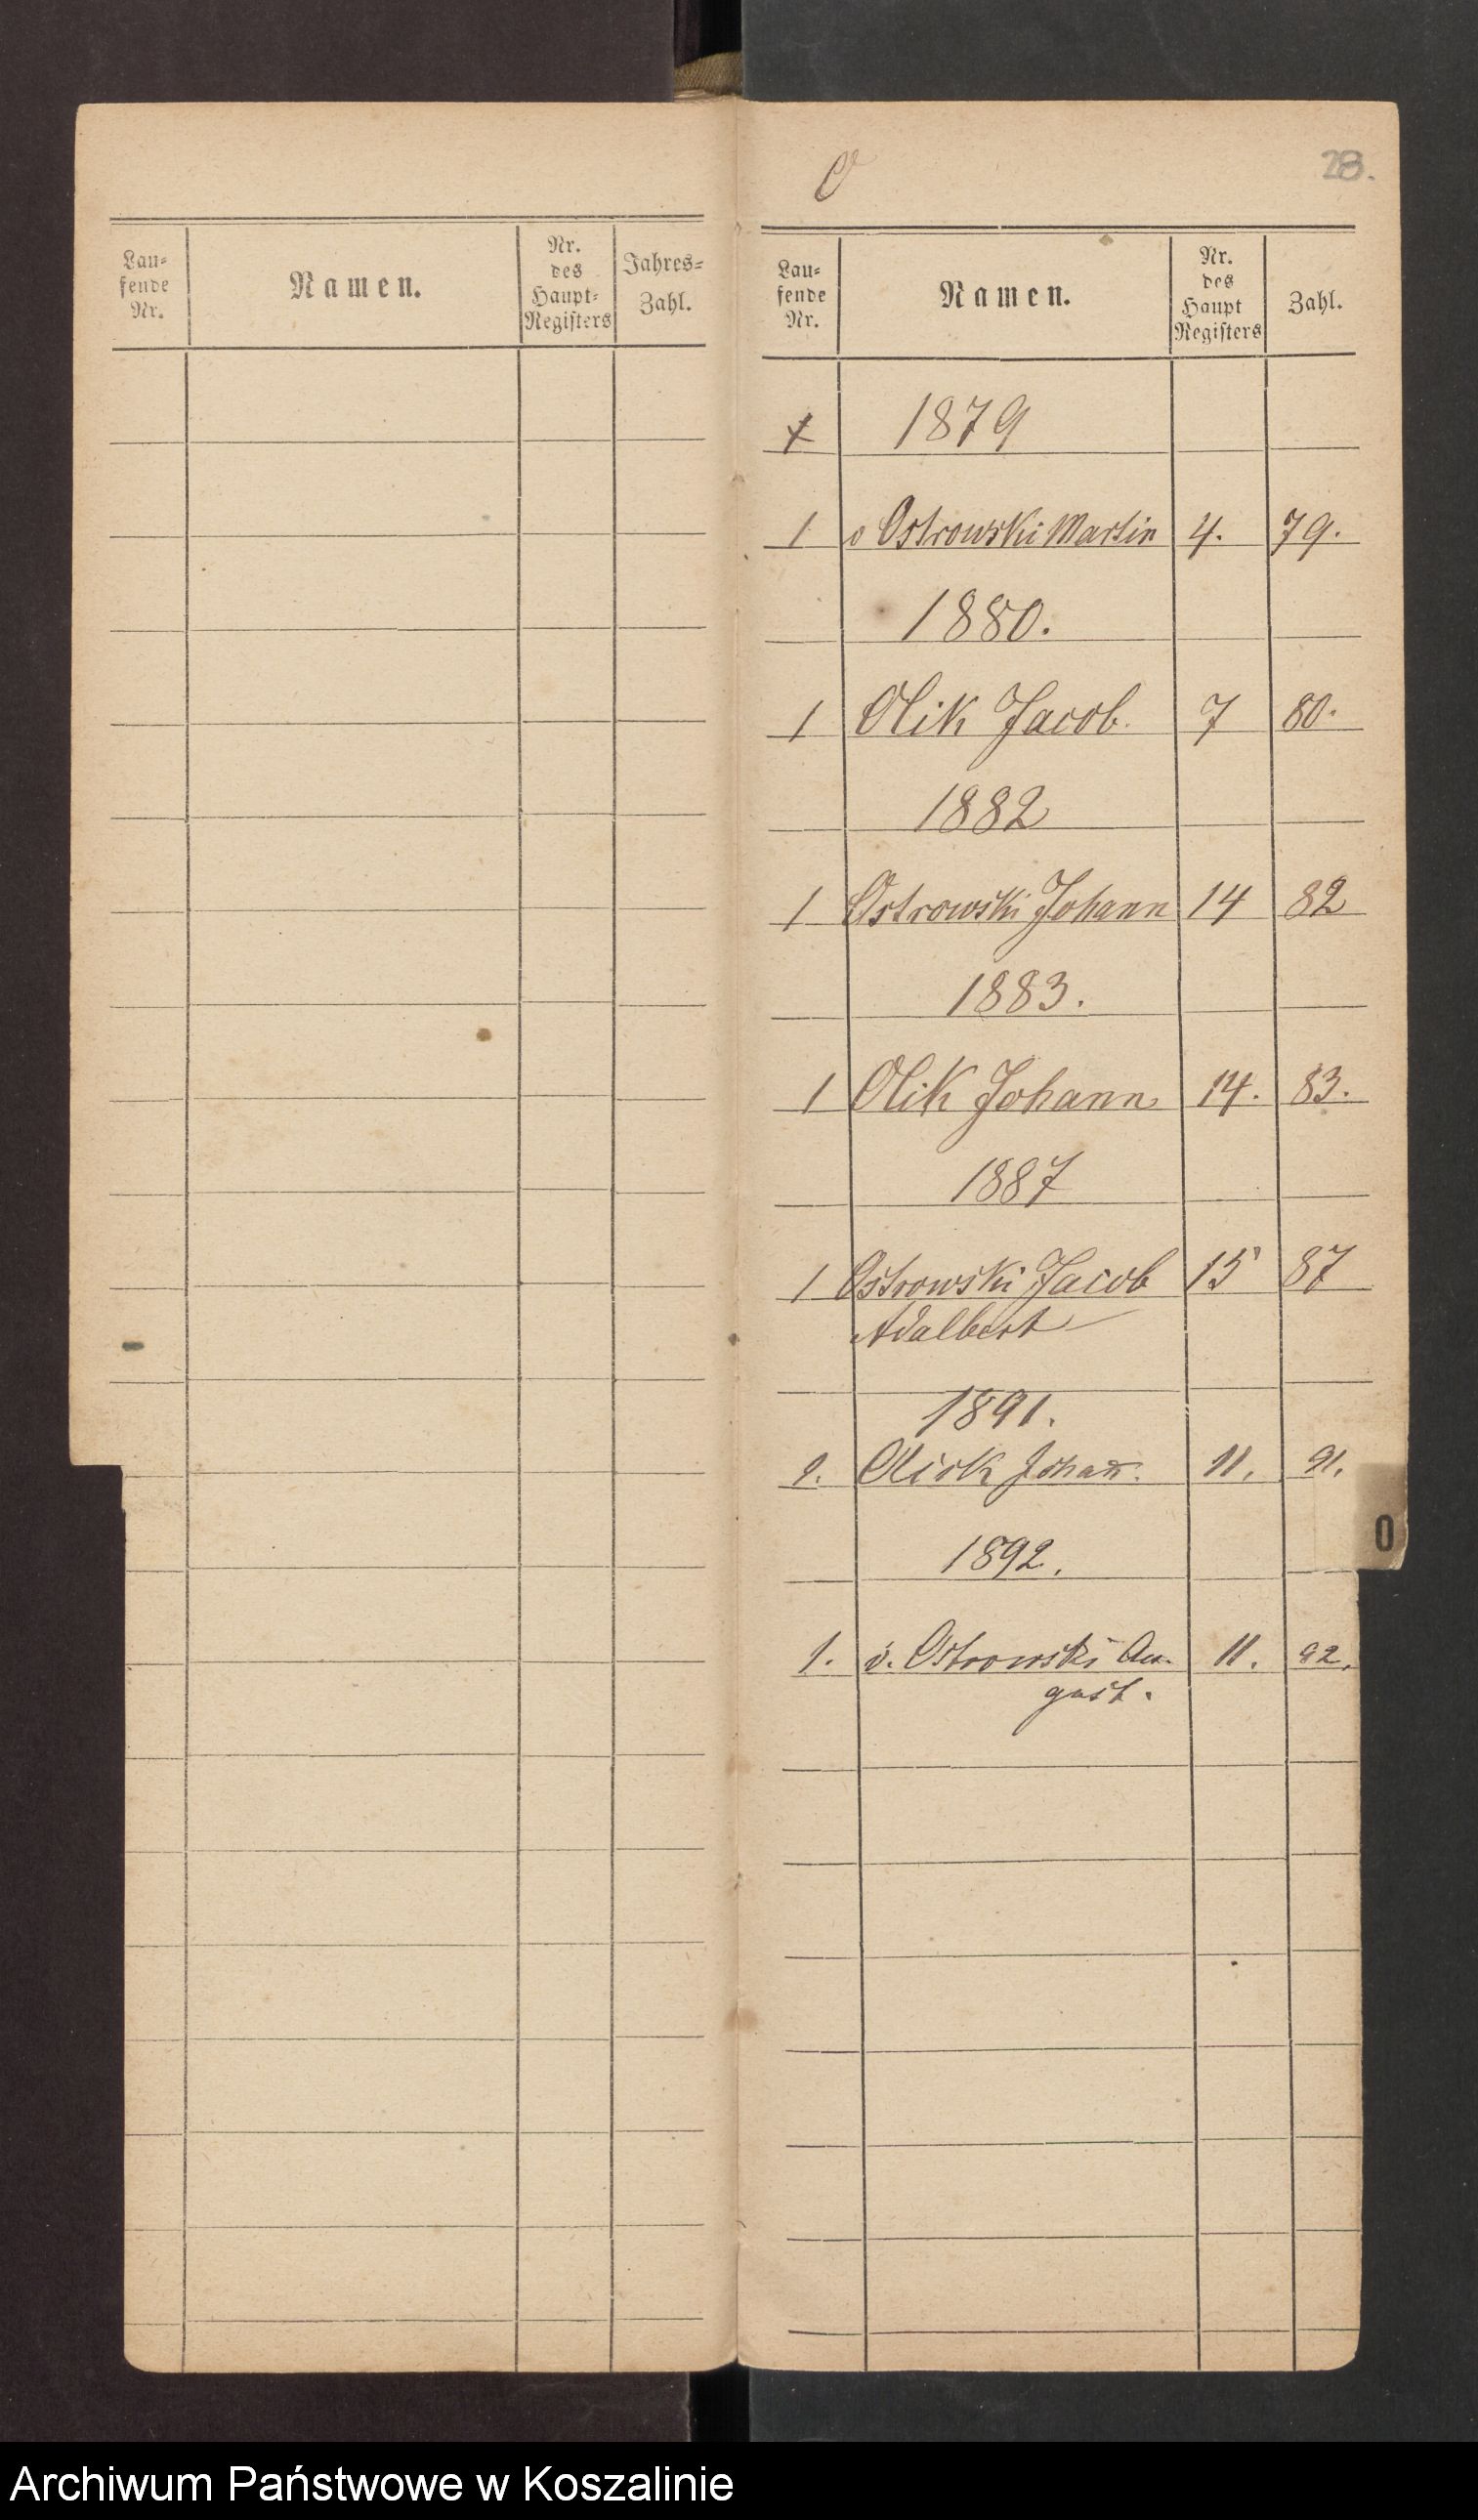 Lau-
fende
Nr.
Namen.
Nr.
des
Haupt-
Registers
Jahres-
Zahl.
O
28.
Lau-
fende
Nr.
Namen.
Nr.
des
Haupt
Registers
Zahl.
1879
1 v Ostrowski Martin 4. 79.
1880.
1 Olik Jacob. 7 80.
1882
1 Ostrowski Johann 14 82
1883.
1 Olik Johann 14. 83.
1887
1 Ostrowski Jacob 15 87
Adalbert
1891.
1. Olick Johañ. 11. 91.
O
1892.
1. v. Ostrowski Au- 11. 92.
gust.
Archiwum Państwowe w Koszalinie